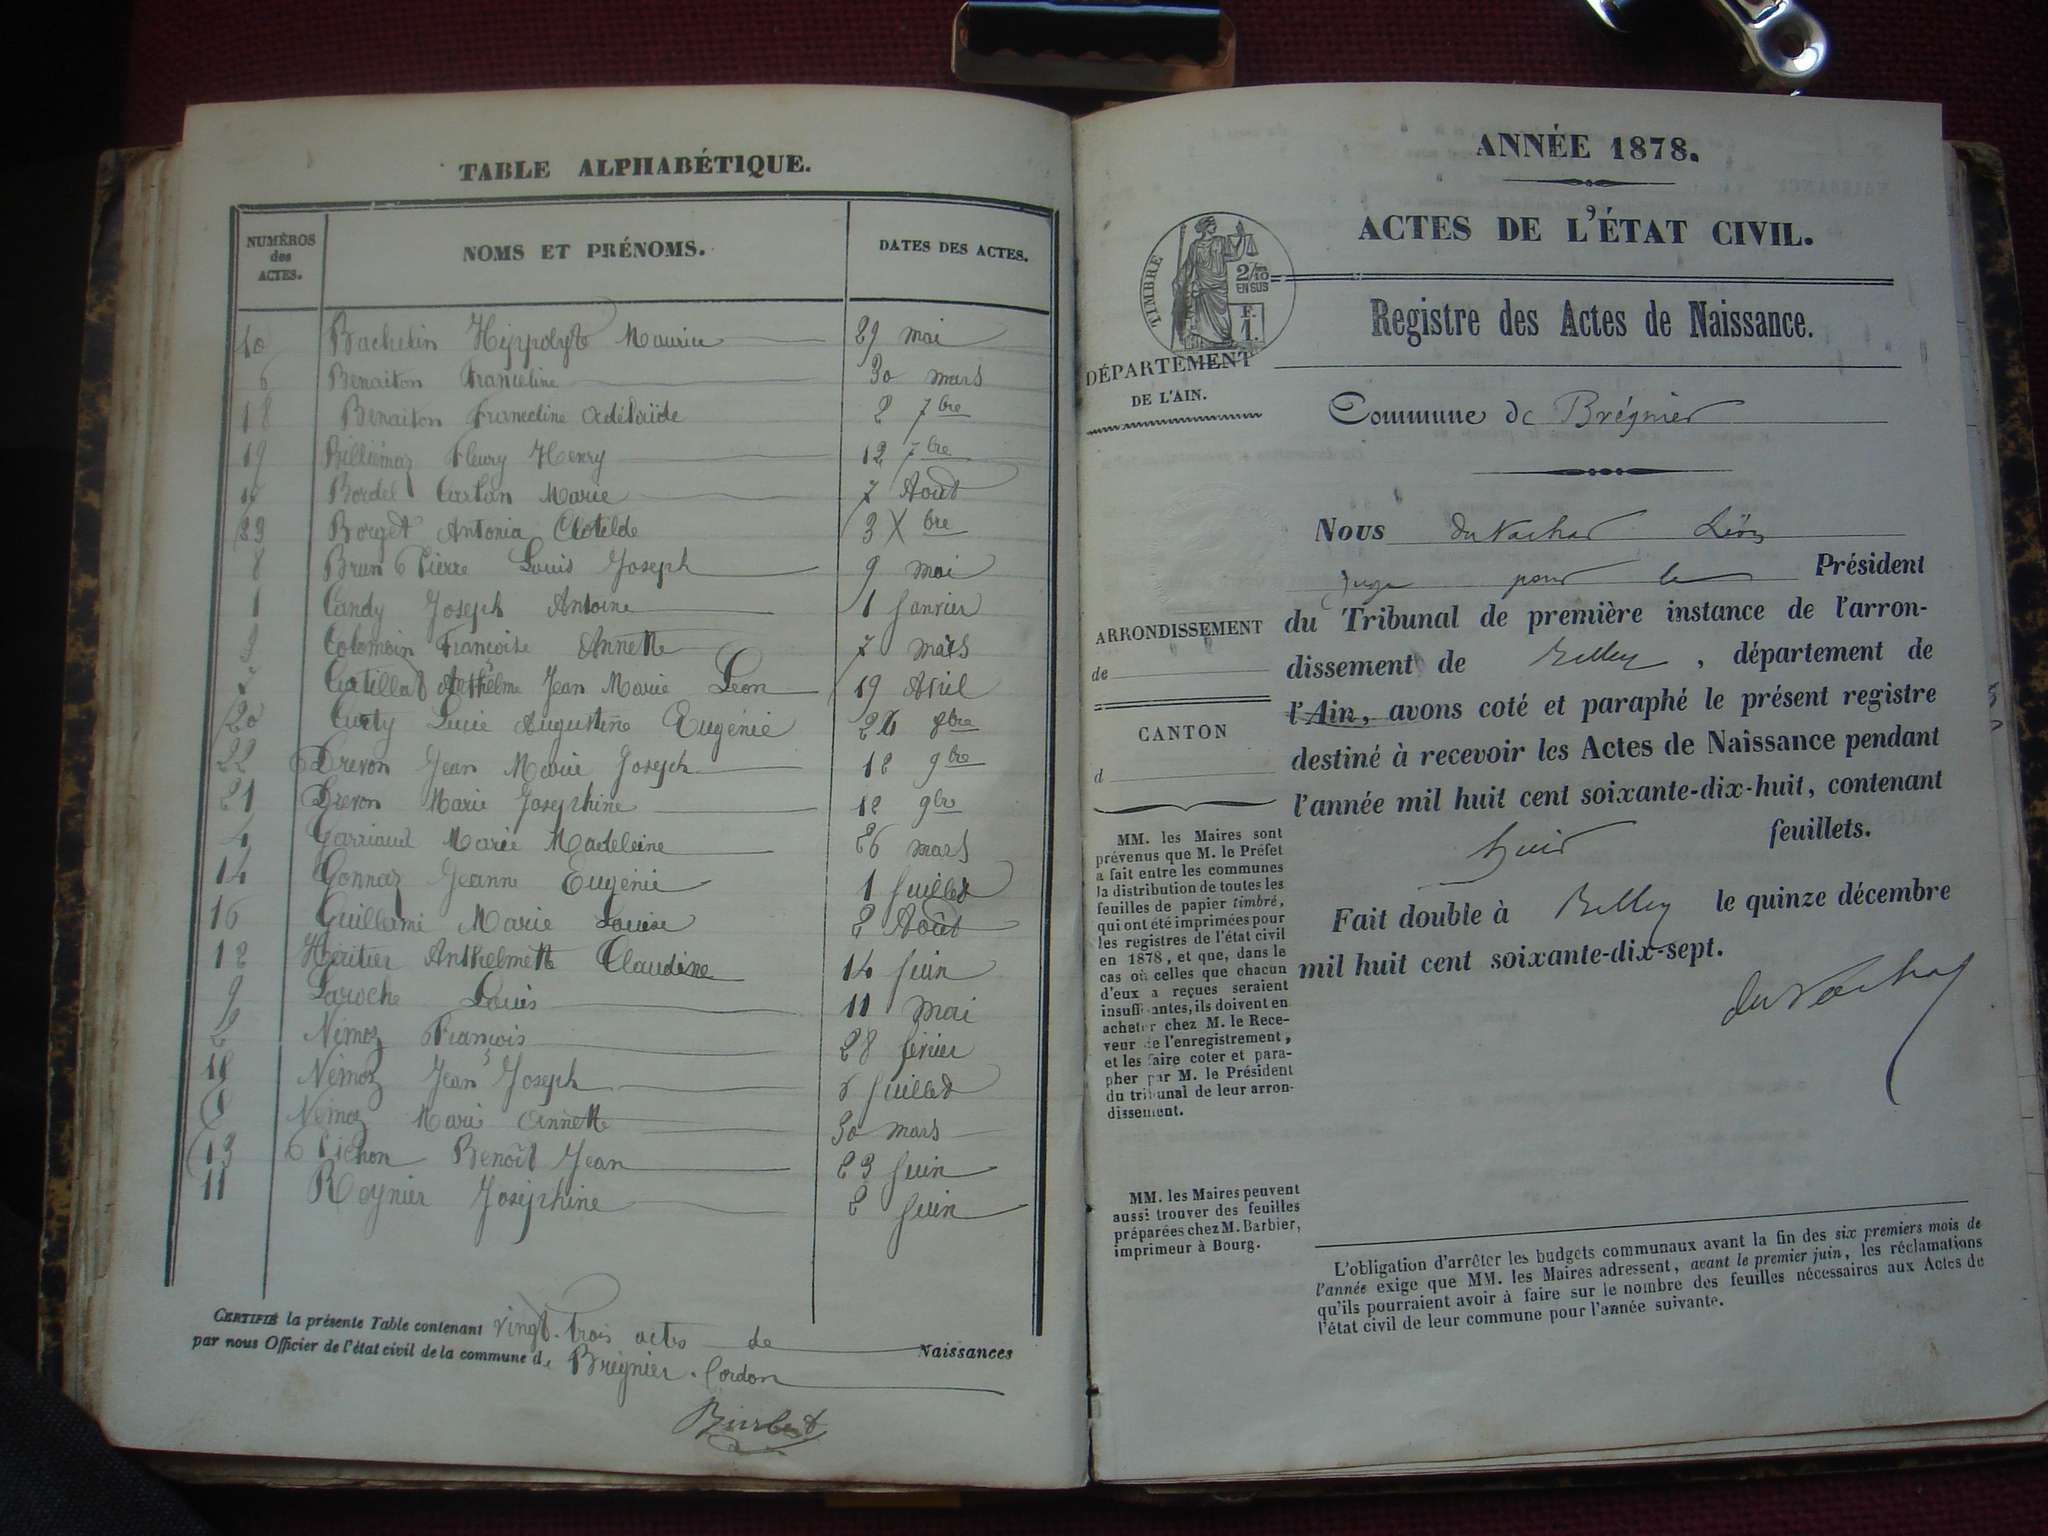 TABLE ALPHABÉTIQUE.
NUMÉROS des ACTES. NOMS ET PRÉNOMS. DATES DES ACTES.
10 Bachelin Hippolyte Maurice 29 mai
6 Benaiton Franceline 30 mars
18 Benaiton Franceline Adélaïde 2 7bre
19 Billiémaz Fleury Henry 12 7bre
Bordel Marie 7 Août
23 Borget Antonia Clotilde 3 Xbre
8 Brun Pierre Louis Joseph 9 mai
1 Candy Joseph Antoine 1 Janvier
3 Colomein Françoise Annette 7 mars
Anthelme Jean Marie Léon 19 Avril
20 Curty Lucie Augustine Eugénie 8bre
22 Drevon Jean Marie Joseph 12 9bre
21 Drevon Marie Joséphine 12 9bre
4 Garriaud Marie Madeleine 26 mars
14 Gonnaz Jeanne Eugénie 1 Juillet
16 Guillami Marie Louise 2 Août
12 Héritier Anthelmette Claudine 14 Juin
9 Laroche Louis 11 Mai
2 Némoz François 28 février
Némoz Jean Joseph Juillet
Némoz Marie Annette 30 mars
13 Pichon Benoît Jean 23 Juin
11 Reynier Joséphine 2 Juin
CERTIFIÉ la présente Table contenant vingt-trois actes de Naissances
par nous Officier de l'état civil de la commune de Brégnier-Cordon
ANNÉE 1878.
ACTES DE L'ÉTAT CIVIL.
TIMBRE
2/10
EN SUS
F.
1.
Registre des Actes de Naissance.
DÉPARTEMENT
DE L'AIN.
Commune de Brégnier
Nous du Vachat Léon
juge pour le Président
du Tribunal de première instance de l'arron-
dissement de Belley, département de
l'Ain, avons coté et paraphé le présent registre
destiné à recevoir les Actes de Naissance pendant
l'année mil huit cent soixante-dix-huit, contenant
huit feuillets.
Fait double à Belley le quinze décembre
mil huit cent soixante-dix-sept.
du Vachat
ARRONDISSEMENT
de
CANTON
d
MM. les Maires sont
prévenus que M. le Préfet
a fait entre les communes
la distribution de toutes les
feuilles de papier timbré,
qui ont été imprimées pour
les registres de l'état civil
en 1878, et que, dans le
cas où celles que chacun
d'eux a reçues seraient
insuffisantes, ils doivent en
acheter chez M. le Rece-
veur de l'enregistrement,
et les faire coter et para-
pher par M. le Président
du tribunal de leur arron-
dissement.
MM. les Maires peuvent
aussi trouver des feuilles
préparées chez M. Barbier,
imprimeur à Bourg.
L'obligation d'arrêter les budgets communaux avant la fin des six premiers mois de
l'année exige que MM. les Maires adressent, avant le premier juin, les réclamations
qu'ils pourraient avoir à faire sur le nombre des feuilles nécessaires aux Actes de
l'état civil de leur commune pour l'année suivante.